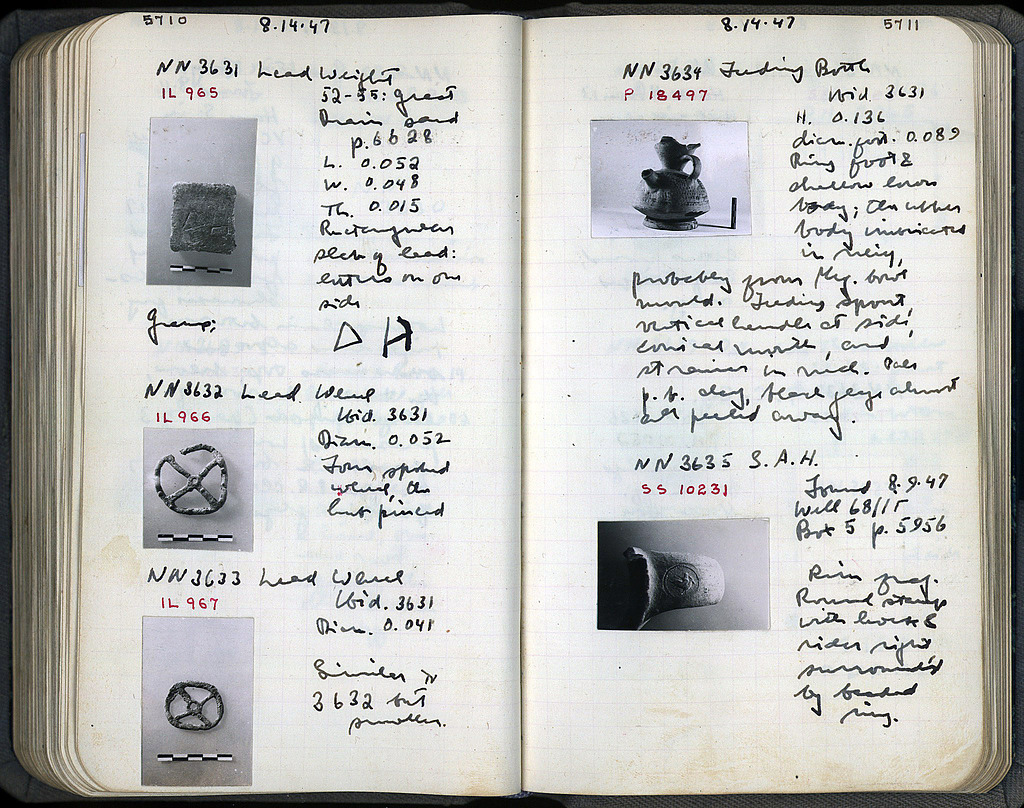 5710
8.14.47
NN 3631 Lead Weight
IL 965
52-55: Great
Drain sand
p. 6628
L. 0.052
W. 0.048
Th. 0.015
Rectangular
of lead:
letters on one
side
Group:
Δ
NN 3632 Lead Wheel
IL 966
Ibid. 3631
Diam. 0.052
Four spoked
wheel, the
hub pierced
NN 3633 Lead Wheel
IL 967
Ibid. 3631
Diam. 0.041
Similar to
3632 but
smaller.
8.14.47
5711
NN 3634 Feeding Bottle
P 18497
Ibid. 3631
H. 0.136
diam. foot. 0.089
Ring foot &
shallow lower
body; the upper
body imbricated
in relief,
probably from Meg. bowl
mould. Feeding spout,
vertical handle at side,
conical mouth, and
strainer in neck. Pale
p.b. clay, black glaze almost
all peeled away.
NN 3635 S.A.H.
SS 10231
Found 8.9.47
Well 68/15
Box 5 p. 5956
Rim frag.
Round stamp
with horse &
rider right
surrounded
by beaded
ring.